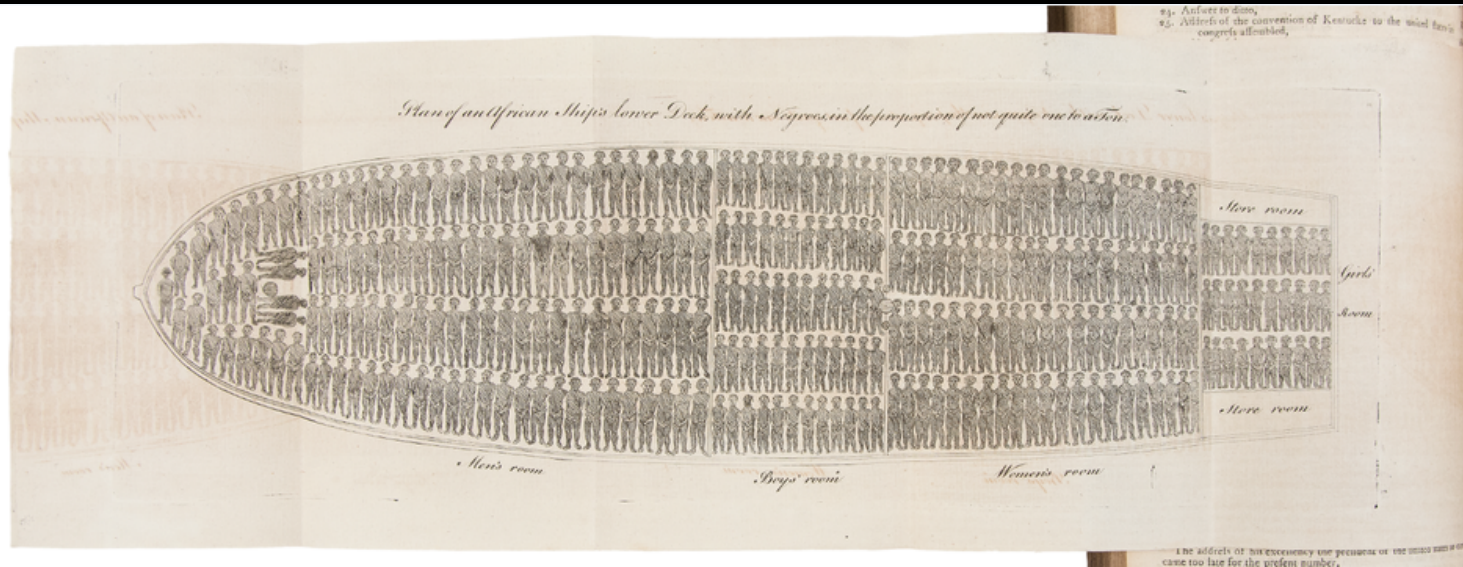 24. Anſwer to ditto,
25. Addreſs of the convention of Kentucke to the united ſtates in
congreſs aſſembled,
Plan of an African Ship's lower Deck, with Negroes, in the proportion of not quite one to a Ton.
Store room
Girls'
Room
Store room
Men's room
Boys' room
Women's room
The addreſs of his excellency the preſident of the united ſtates
came too late for the preſent number,